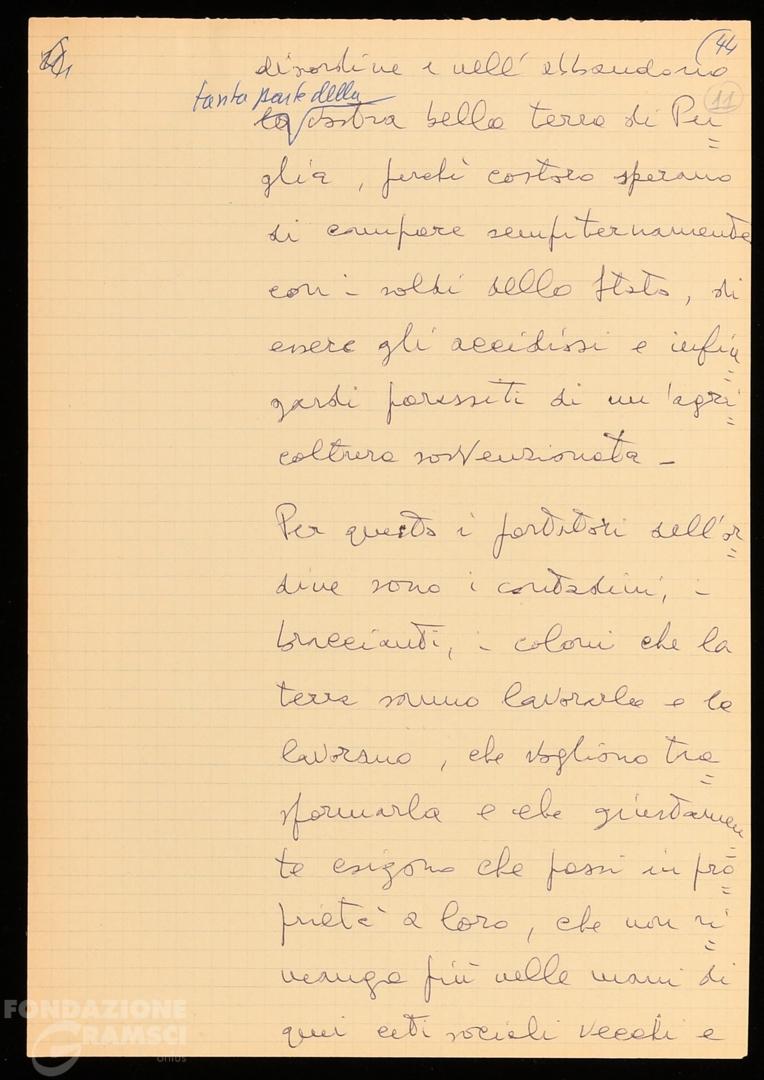 44
11
disordine e nell'abbandono
tanta parte della
la vostra bella terra di Pu=
glia, perché costoro sperano
di campare sempiternamente
con i soldi dello Stato, di
essere gli accidiosi e infin=
gardi parassiti di un'agri=
coltura sovvenzionata -
Per questo i portatori dell'or=
dine sono i contadini, i
braccianti, i coloni che la
terra sanno lavorarla e la
lavorano, che vogliono tra=
sformarla e che giustamen=
te esigono che passi in pro=
prietà a loro, che non ri=
manga più nelle mani di
quei ceti sociali vecchi e
FONDAZIONE
GRAMSCI
onlus